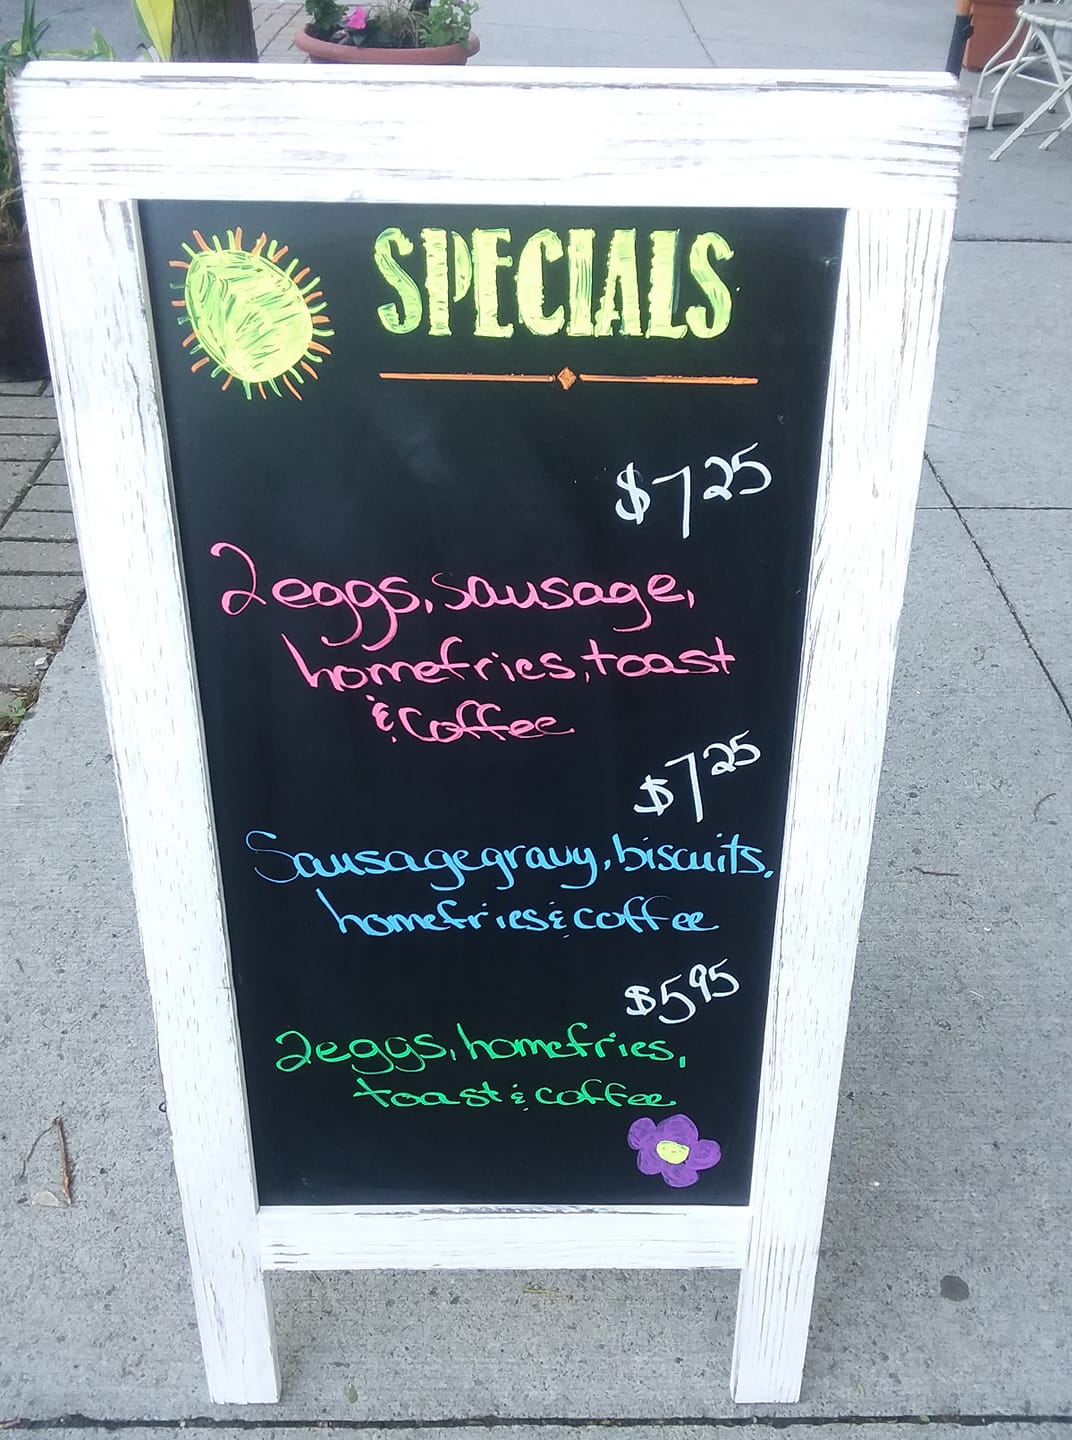 SPECIALS
$7 25
2 eggs, sausage,
homefries, toast
& coffee
$7 25
Sausage gravy, biscuits,
homefries & coffee
$5 95
2 eggs, homefries,
toast & coffee